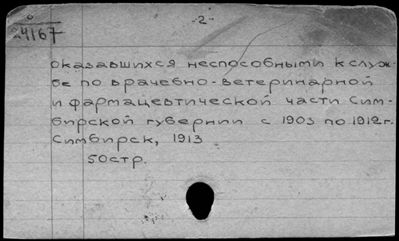 -2-
24167
оказавшихся неспособными к служ-
бе по врачебно-ветеринарной
и фармацевтической части Сим-
бирской губернии с 1903 по 1912 г.
Симбирск, 1913
50стр.